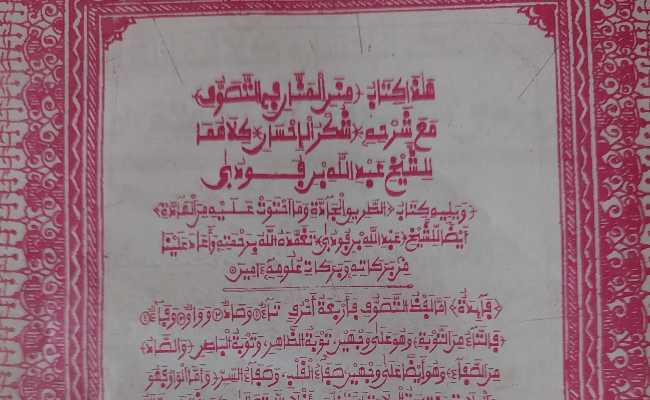 هذا كتاب ﴿منن المنان في التصوف﴾
مع شرحه ﴿شكر الإحسان﴾ كلاهما
للشيخ عبد الله بن فودي
﴿ويليه كتاب ﴿الطريق الجادة وما احتوت عليه من الفائدة﴾
أيضا للشيخ ﴿عبد الله بن فودي﴾ تغمده الله برحمته وأعاد علينا
من بركاته وبركات علومه ءامين
﴿فائدة﴾ أما لفظ التصوف فأربعة أحرف تاء وصاد وواو وفاء
فالتاء من التوبة وهو على وجهين، توبة الظاهر، وتوبة الباطن ﴿والصاد﴾
من الصفاء وهو أيضا على وجهين صفاء القلب، وصفاء السر ﴿وأما الواو فهو